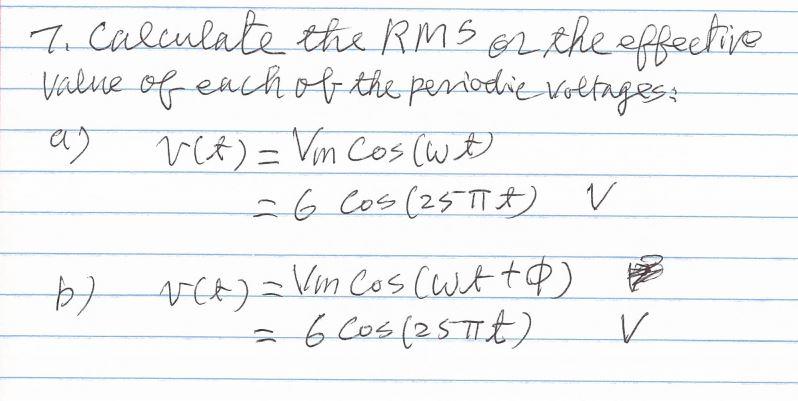 7. Calculate the RMS or the effective
value of each of the periodic voltages:
a) v(t) = Vm Cos(ωt)
= 6 Cos(25πt) V
b) v(t) = Vm Cos(ωt + φ)
= 6 Cos(25πt) V